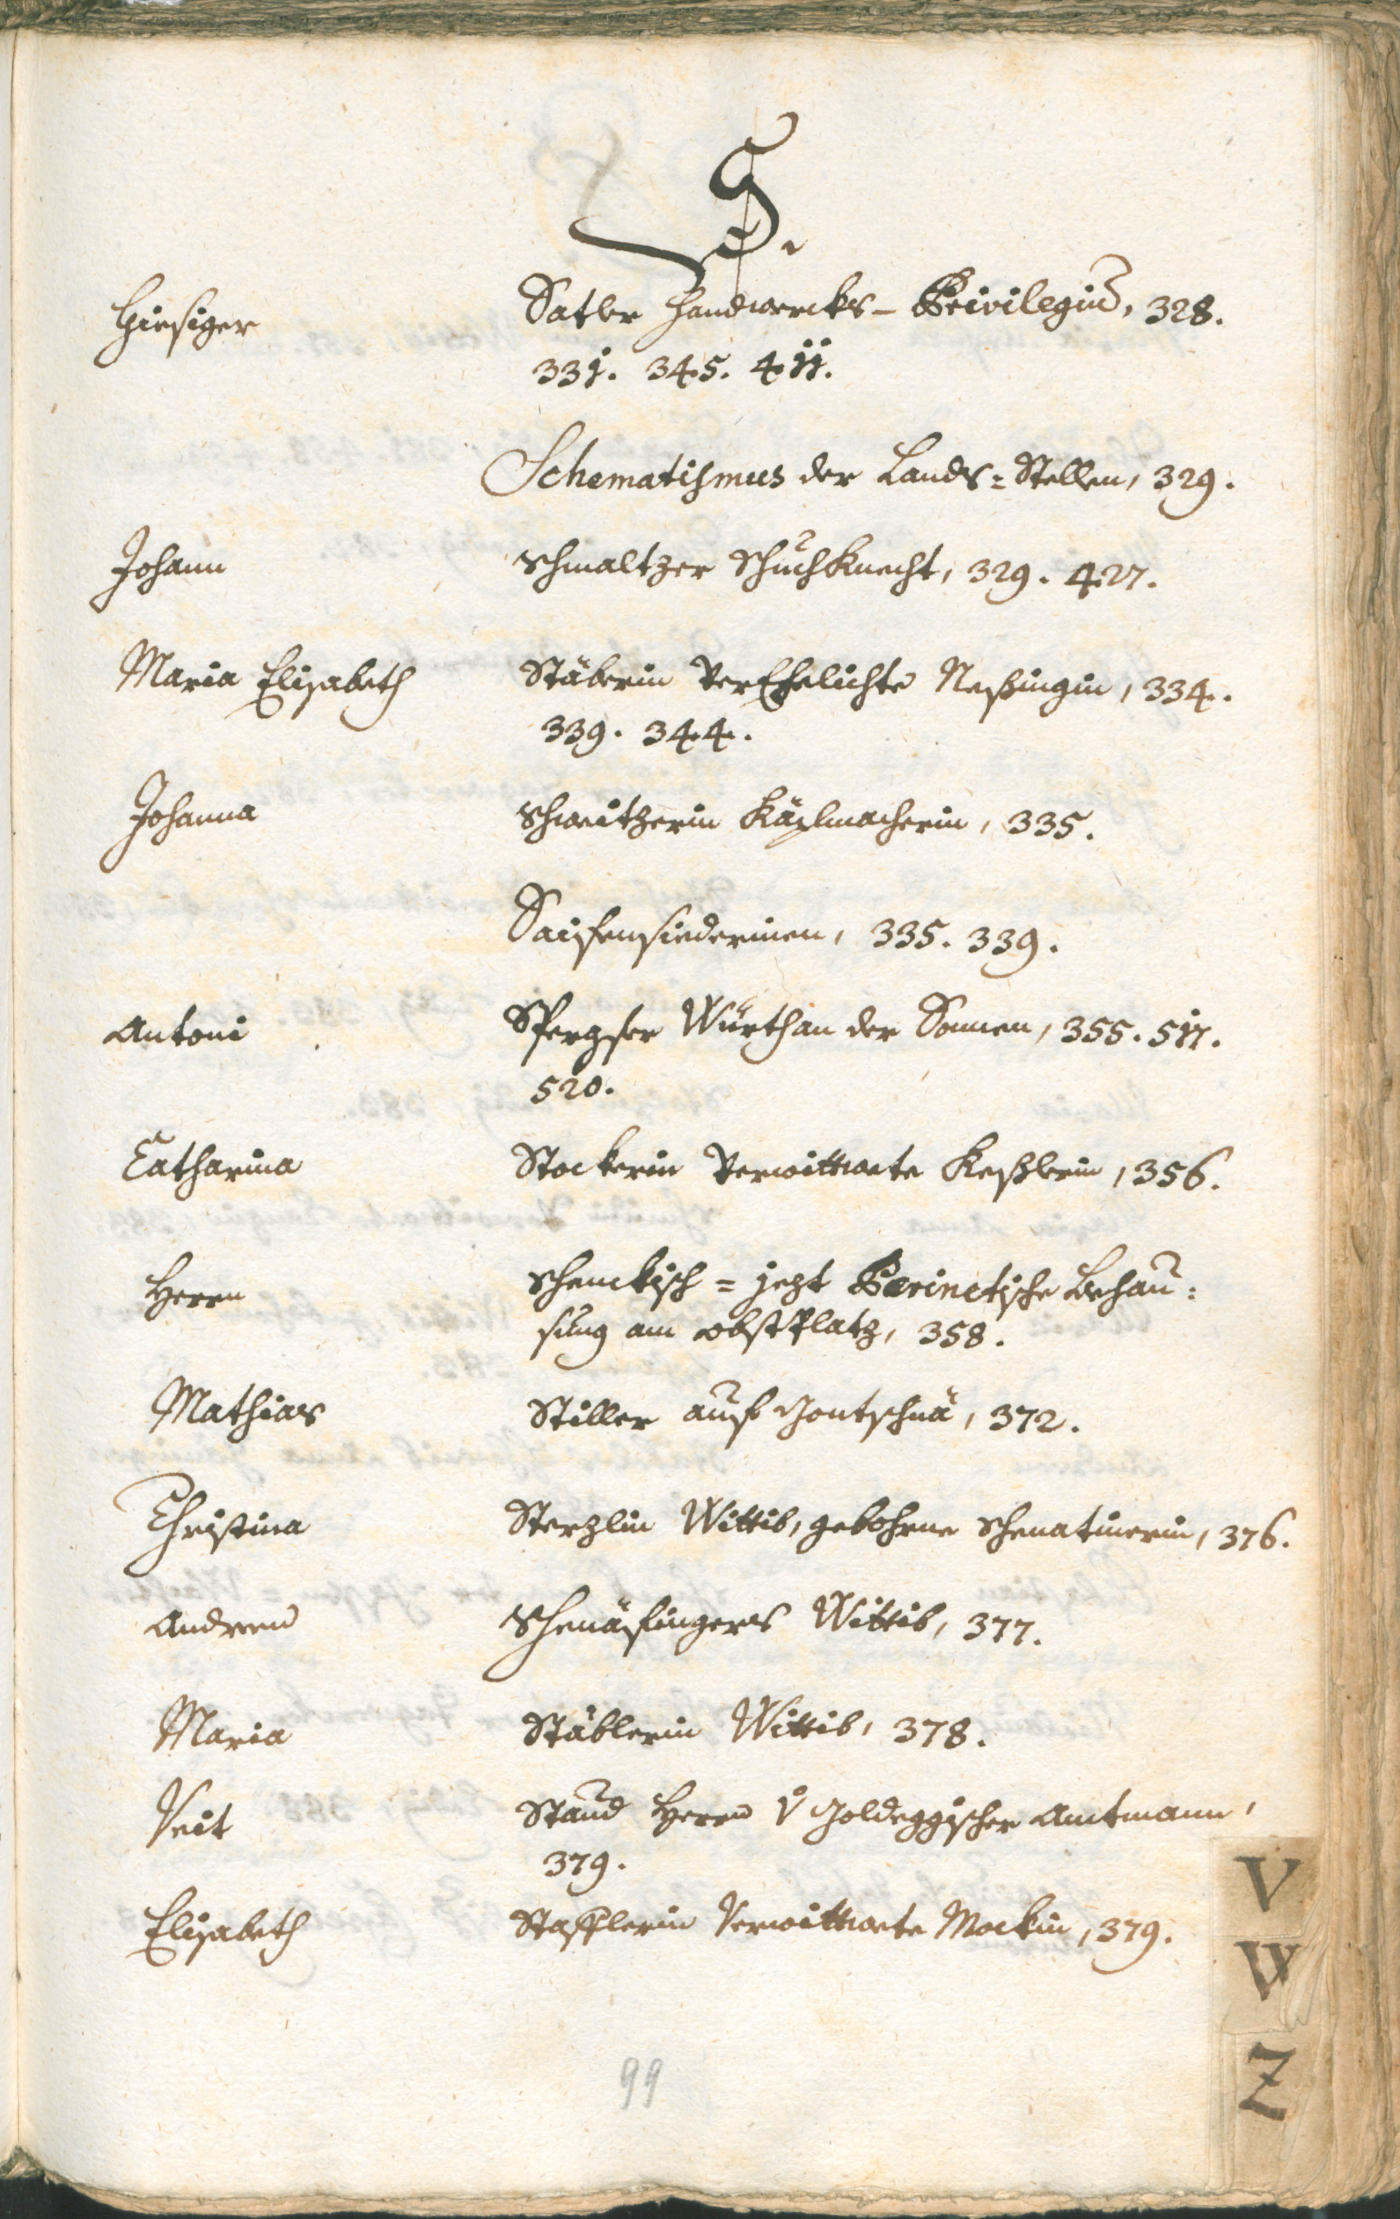 S.
Hiesiger Satler Handwercks-Privilegiu̅, 328.
331. 345. 411.
Schematismus der Lands=Stellen, 329.
Johann Schmaltzer Schuchknecht, 329. 427.
Maria Elisabeth Stäberin Verehelichte Neßingin, 334.
339. 344.
Johanna Schweitzerin Käplmacherin, 335.
Saifensiederinen, 335. 339.
Antoni Würth an der Sonnen, 355. 517.
520.
Catharina Stockerin Verwittwete Keßlerin, 356.
Herrn Schenckisch= jezt Perinetische Behau=
sung am obstPlatz, 358.
Mathias Stiller auf Gontschnä, 372.
Christina Sterzlin Wittib, gebohrne Schenatinerin, 376.
Andreen Wittib, 377.
Maria Stäblerin Wittib, 378.
Veit Staud Herrn v Goldeggischer Amtmann,
379.
Elisabeth Stafflerin Verwittwete Mockin, 379.
V
W
Z
99